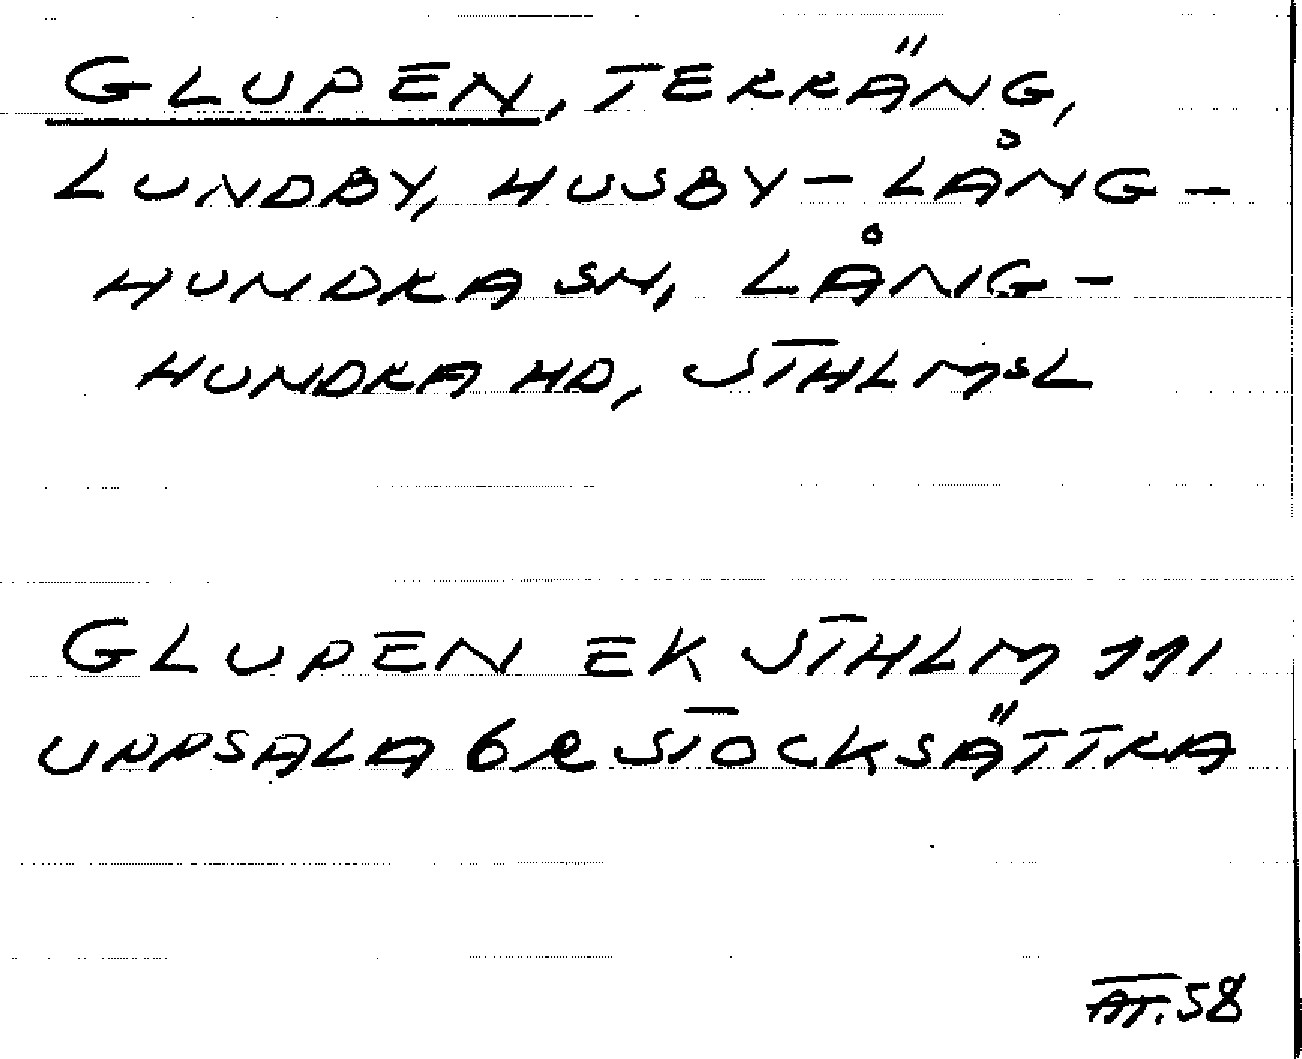 GLUPEN, TERRÄNG,
LUNDBY, HUSBY-LÅNG-
HUNDRA SN, LÅNG-
HUNDRA HD, STHLMSL
GLUPEN EK STHLM 111
UPPSALA 6e STOCKSÄTTRA
AT. 58